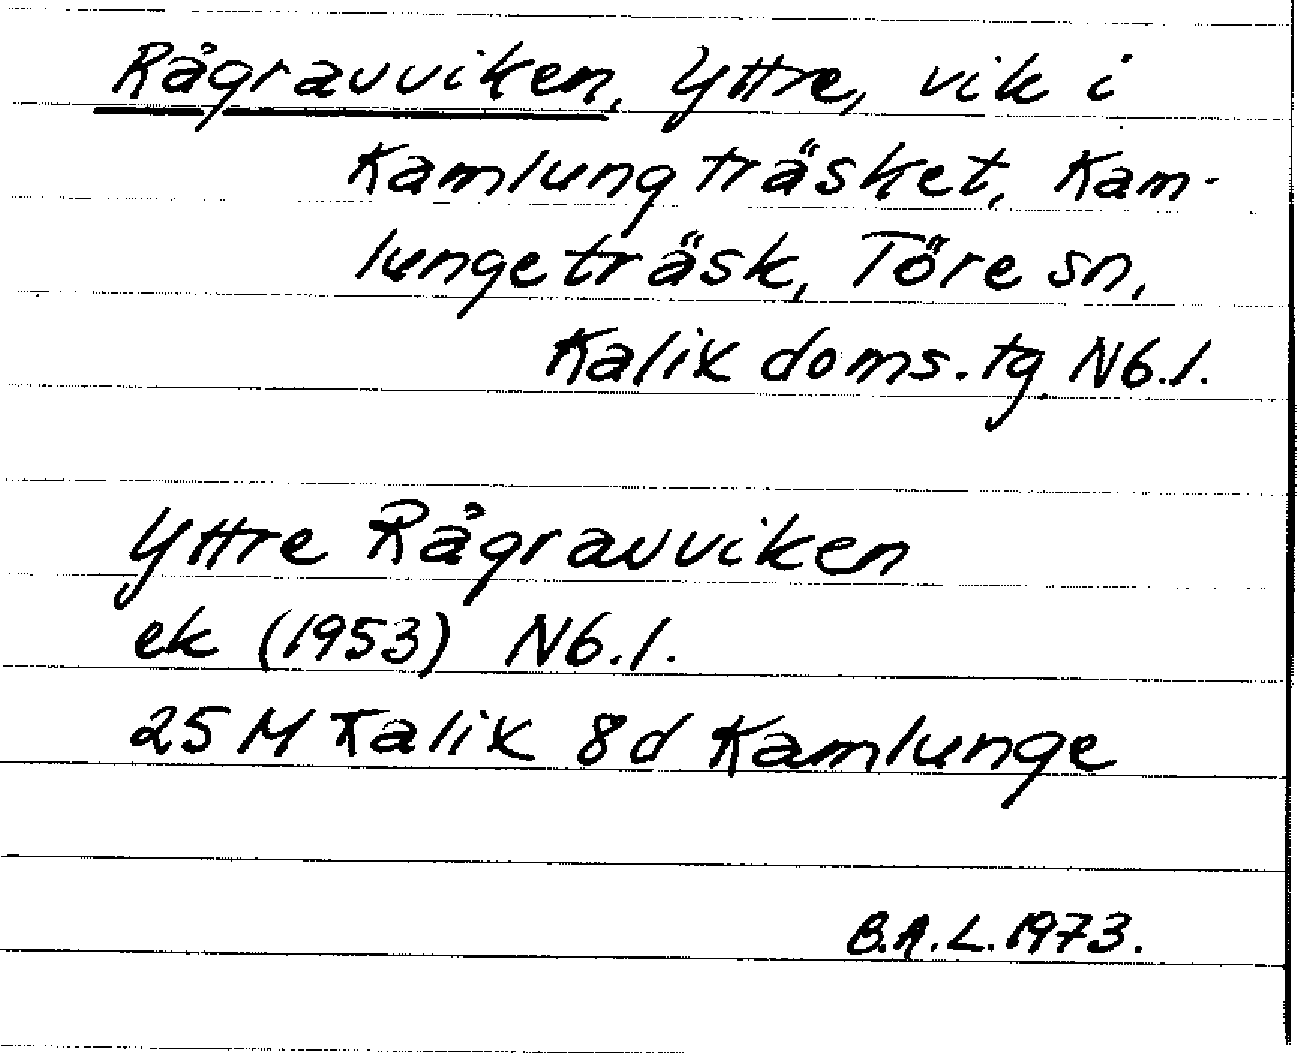 Rågravviken, Yttre, vik i
Kamlungträsket, Kam-
lungeträsk, Töre sn,
Kalix doms.tg Nb.l.
Yttre Rågravviken
ek (1953) Nb.l.
25 M Kalix 8d Kamlunge
B.A.L. 1973.